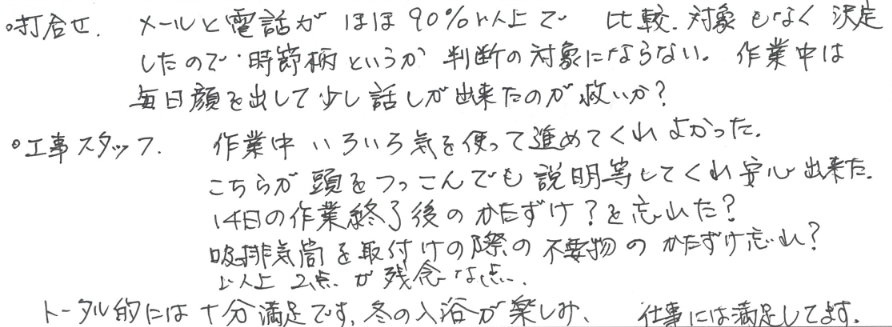 ○打合せ. メールと電話がほぼ90%以上で 比較.対象もなく決定
したので.時節柄というか 判断の対象にならない。 作業中は
毎日顔を出して少し話しが出来たのが救いか?
○工事スタッフ. 作業中いろいろ気を使って進めてくれよかった.
こちらが頭をつっこんでも説明等してくれ安心出来た.
14日の作業終了後のかたずけ?を忘れた?
吸排気筒を取付けの際の不要物のかたずけ忘れ?
以上2点が残念な点.
トータル的には十分満足です.冬の入浴が楽しみ、 仕事には満足してます.